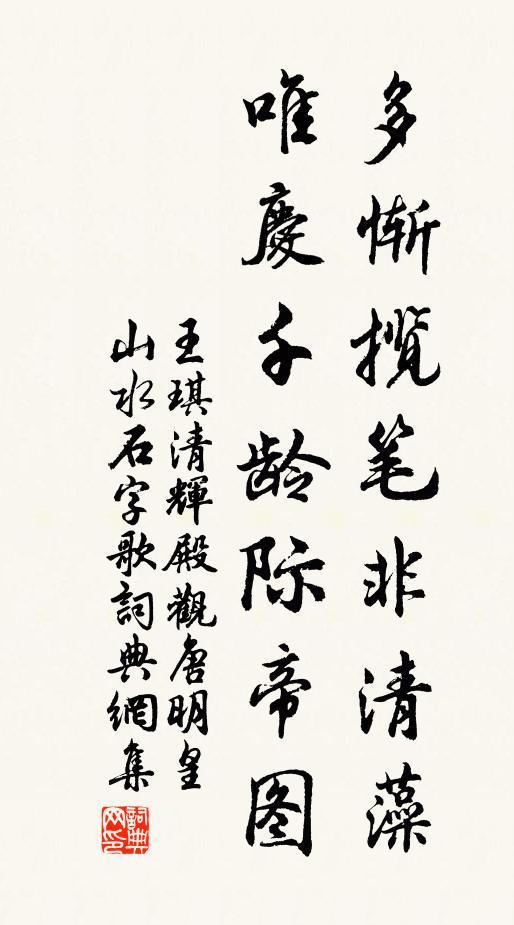 多惭揽笔非清藻
唯慶千龄际帝图
王琪清輝殿觀唐明皇
山水石字歌詞典網集
詞典网印